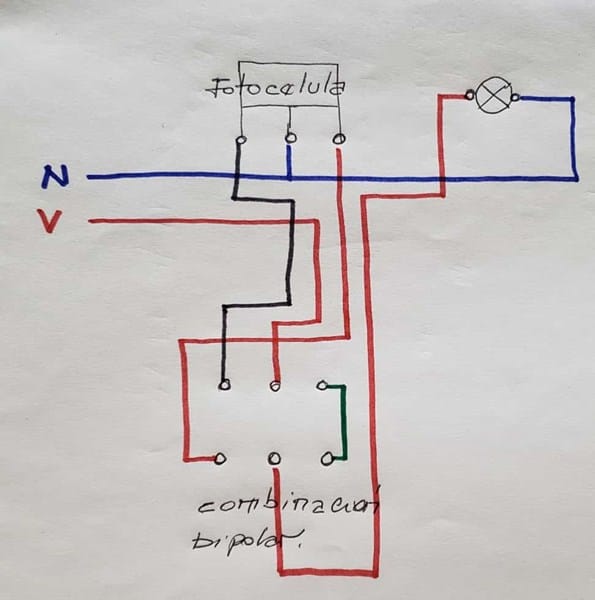 Fotocelula
N
V
combinación
bipolar.